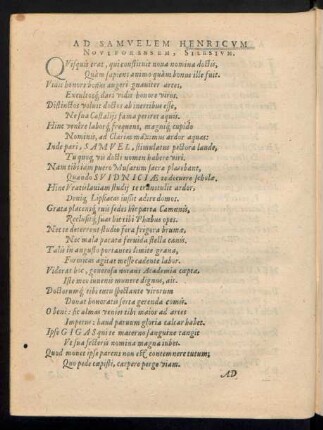 AD SAMVELEM HENRICVM
NOVIFORENSEM, SILESIVM.
QVisquis erat, qui constituit noua nomina doctis,
Quàm sapiens animo quàm bonus ille fuit.
Vidit honore bonas augeri gnauiter artes,
Excultosq́; dari vidit honore viros.
Distinctos voluit doctos ab inertibus esse,
Ne sua Castalijs fama periret aquis.
Hinc venere laborq́; frequens, magniq́; cupido
Nominis, ad Clarias maximus ardor aquas:
Inde pari, SAMVEL, stimulatus pectora laude,
Tu quoq; vis docti nomen habere viri.
Nam tibi iam puero Musarum sacra placebant,
Quando SVIDNICIAE te docuere scholae,
Hinc Vratislauiam studij te transtulit ardor,
Doniq́; Lipsiacam iussit adire domos.
Grata placensq́; tuis sedes hic parta Camoenis,
Reclusitq́; suas hic tibi Phoebus opes.
Nec te deterrent studio fora frigora brumae,
Nec mala pacata feruida stella canis.
Talis in angusto portantes limite grana,
Formicas agitat messe cadente labor.
Viderat hoc, generosa novans Academia cupta.
Iste meo inuenit munere dignus, ait.
Doctorumq́; tibi coetu spectante virorum
Donat honoratis serta gerenda comis.
O bene: sic almae veniet tibi maior ad artes
Impetus: haud paruum gloria calcar habet.
Ipse GIGAS qui te materno sanguine tangit
Et sua sectoris nomina magna iubet.
Quod munus ipse parens non est contemnere tutum;
Quo pede cepisti, carpere perge viam.
AD